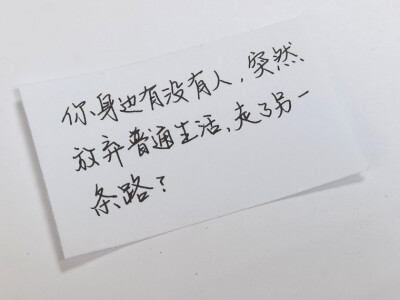 你身边有没有人，突然
放弃普通生活，走了另一
条路？